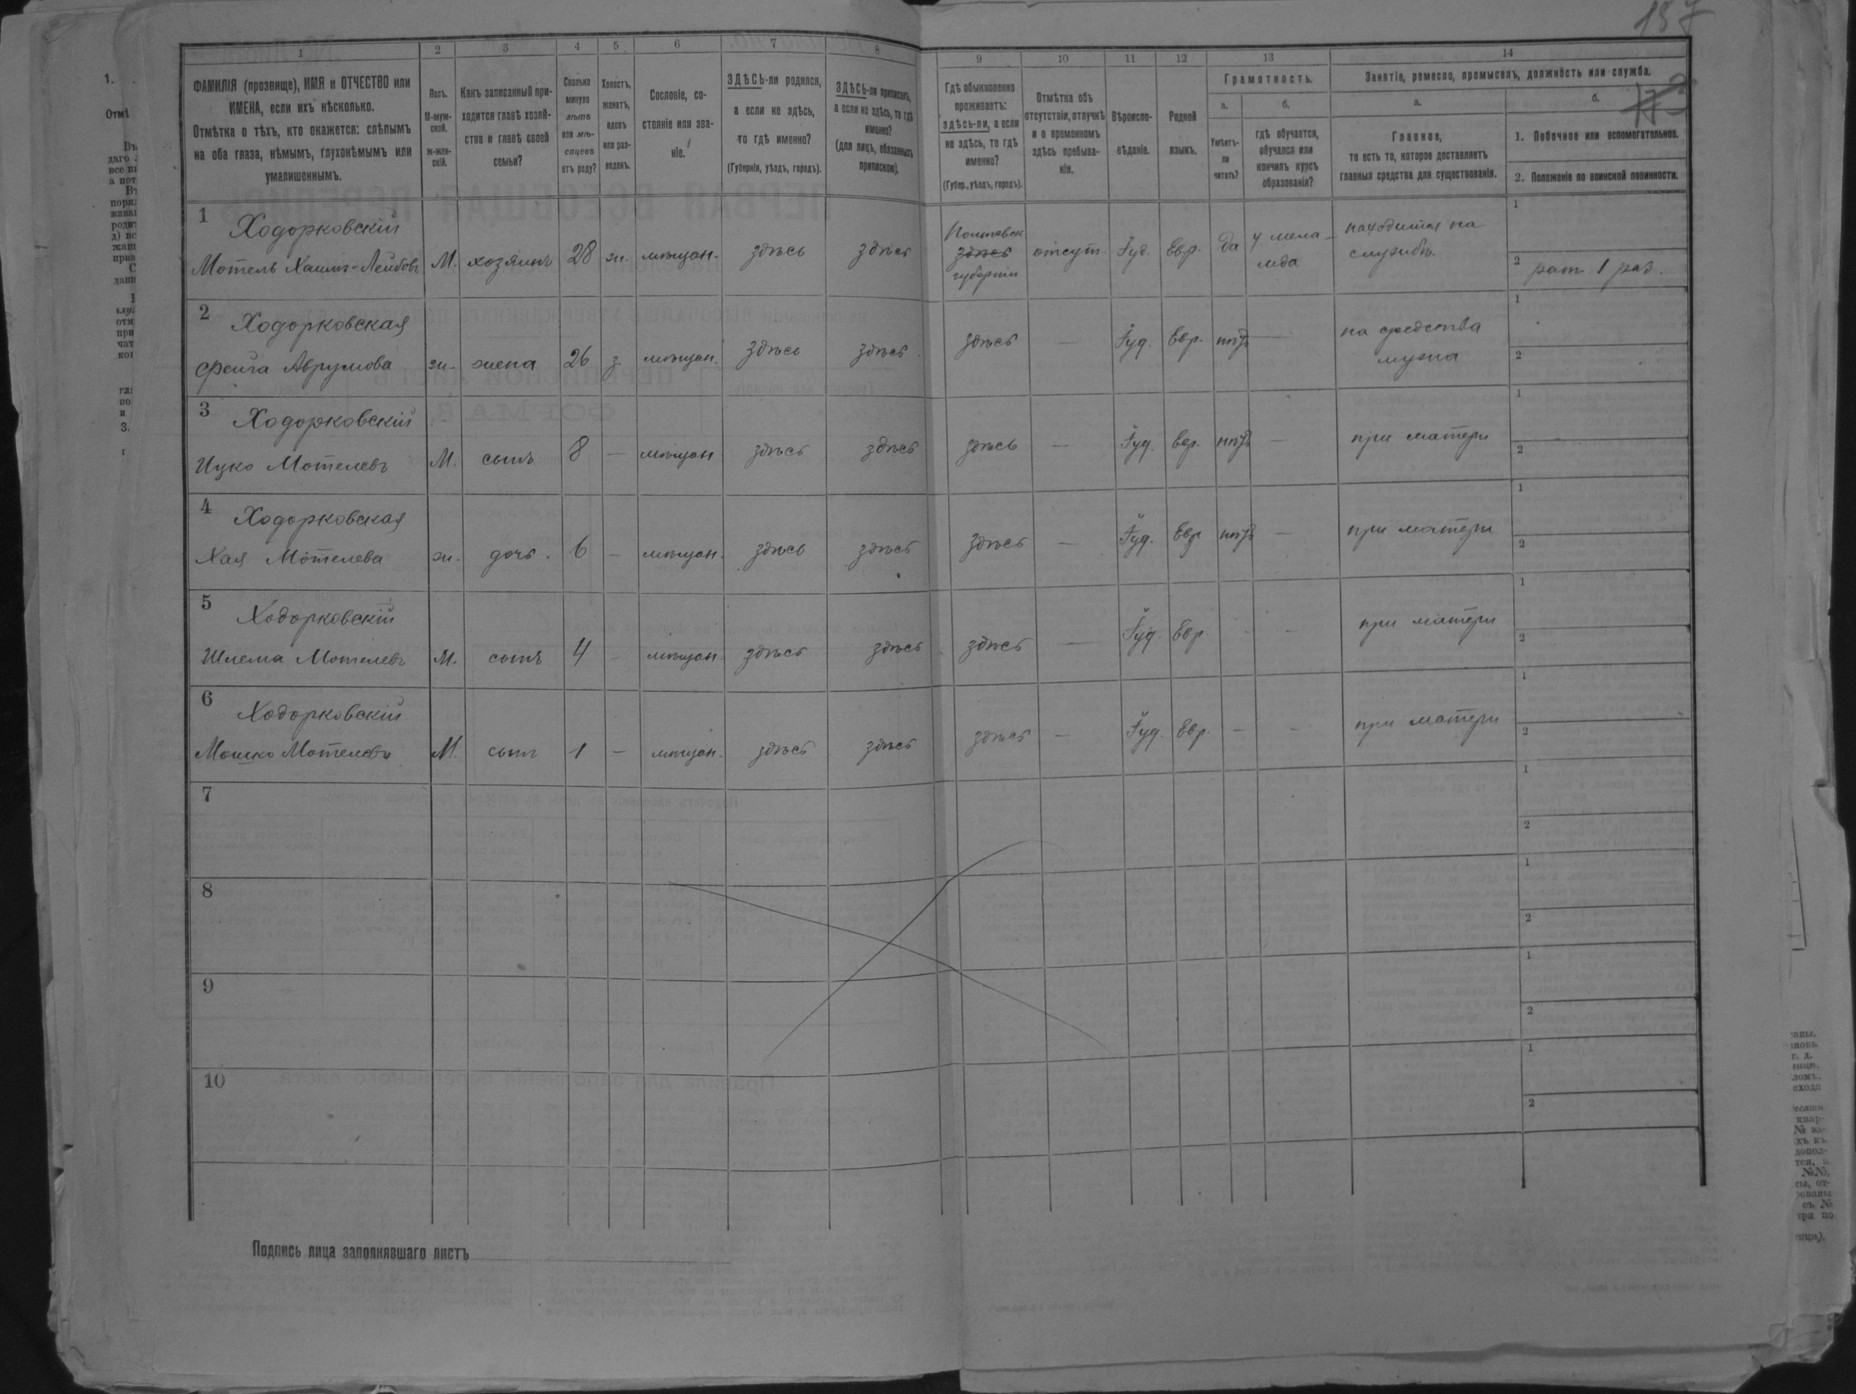 157
1 2 3 4 5 6 7 8 9 10 11 12 13 14
ФАМИЛІЯ (прозвище), ИМЯ и ОТЧЕСТВО или ИМЕНА, если ихъ нѣсколько.
Отмѣтка о тѣхъ, кто окажется: слѣпымъ на оба глаза, нѣмымъ, глухонѣмымъ или умалишеннымъ.
Полъ.
М-муж-
ской.
ж-жен-
скій.
Какъ записанный при-
ходится главѣ хозяй-
ства и главѣ своей
семьи?
Сколько
минуло
лѣтъ
или мѣ-
сяцевъ
отъ роду?
Холостъ,
женатъ,
вдовъ
или раз-
веденъ.
Сословіе, со-
стояніе или зва-
ніе.
ЗДѢСЬ-ли родился,
а если не здѣсь,
то гдѣ именно?
(Губернія, уѣздъ, городъ).
ЗДѢСЬ-ли приписанъ,
а если не здѣсь, то гдѣ
именно?
(для лицъ, обязанныхъ
припиской).
Гдѣ обыкновенно
проживаетъ:
здѣсь-ли, а если
не здѣсь, то гдѣ
именно?
(Губер., уѣздъ, городъ).
Отмѣтка объ
отсутствіи, отлучкѣ
и о временномъ
здѣсь пребыва-
ніи.
Вѣроиспо-
вѣданіе.
Родной
языкъ.
Грамотность.
а.
Умѣетъ-
ли
читать?
б.
гдѣ обучается,
обучался или
кончилъ курсъ
образованія?
Занятіе, ремесло, промыселъ, должность или служба.
а.
Главное,
то есть то, которое доставляетъ
главныя средства для существованія.
б.
1. Побочное или вспомогательное.
2. Положеніе по воинской повинности.
1 Ходорковскій
Мотель Хаимъ-Лейбовъ М. хозяинъ 28 ж. мѣщан. здѣсь здѣсь Полтавск здѣсь губерніи отсут. Іуд. Евр. да у мела-
меда находится на
службѣ. 1
2 рат. 1 раз.
2 Ходорковская
Фейга Аврумова ж. жена 26 з. мѣщан. здѣсь здѣсь здѣсь — Іуд. Евр. нѣтъ — на средства
мужа 1
2
3 Ходорковскій
Ицко Мотелевъ М. сынъ 8 — мѣщан здѣсь здѣсь здѣсь — Іуд. евр. нѣтъ — при матери 1
2
4 Ходорковская
Хая Мотелева ж. дочь. 6 — мѣщан. здѣсь здѣсь здѣсь — Іуд. Евр нѣтъ — при матери 1
2
5 Ходорковскій
Шлема Мотелевъ М. сынъ 4 — мѣщан здѣсь здѣсь здѣсь — Іуд. Евр - - при матери 1
2
6 Ходорковскій
Мошко Мотелевъ М. сынъ 1 — мѣщан. здѣсь здѣсь здѣсь — Іуд. Евр. - - при матери 1
2
7 1
2
8 1
2
9 1
2
10 1
2
Подпись лица заполнявшаго листъ